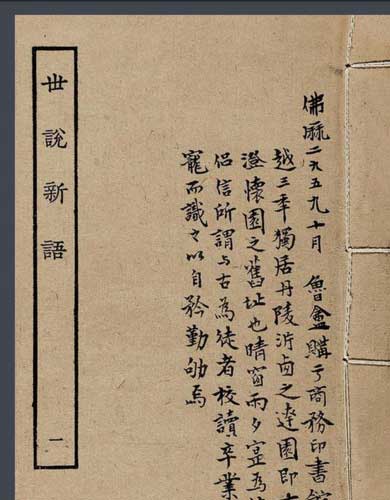 佛厤二九五九十月 魯盦購于商務印書館
越三季獨居丹陵沜卤之達園即
澄懷園之舊址也晴窗雨夕寔為
侶信所謂与古為徒者校讀卒業
寵而識之以自矜勤劬焉
世說新語 一